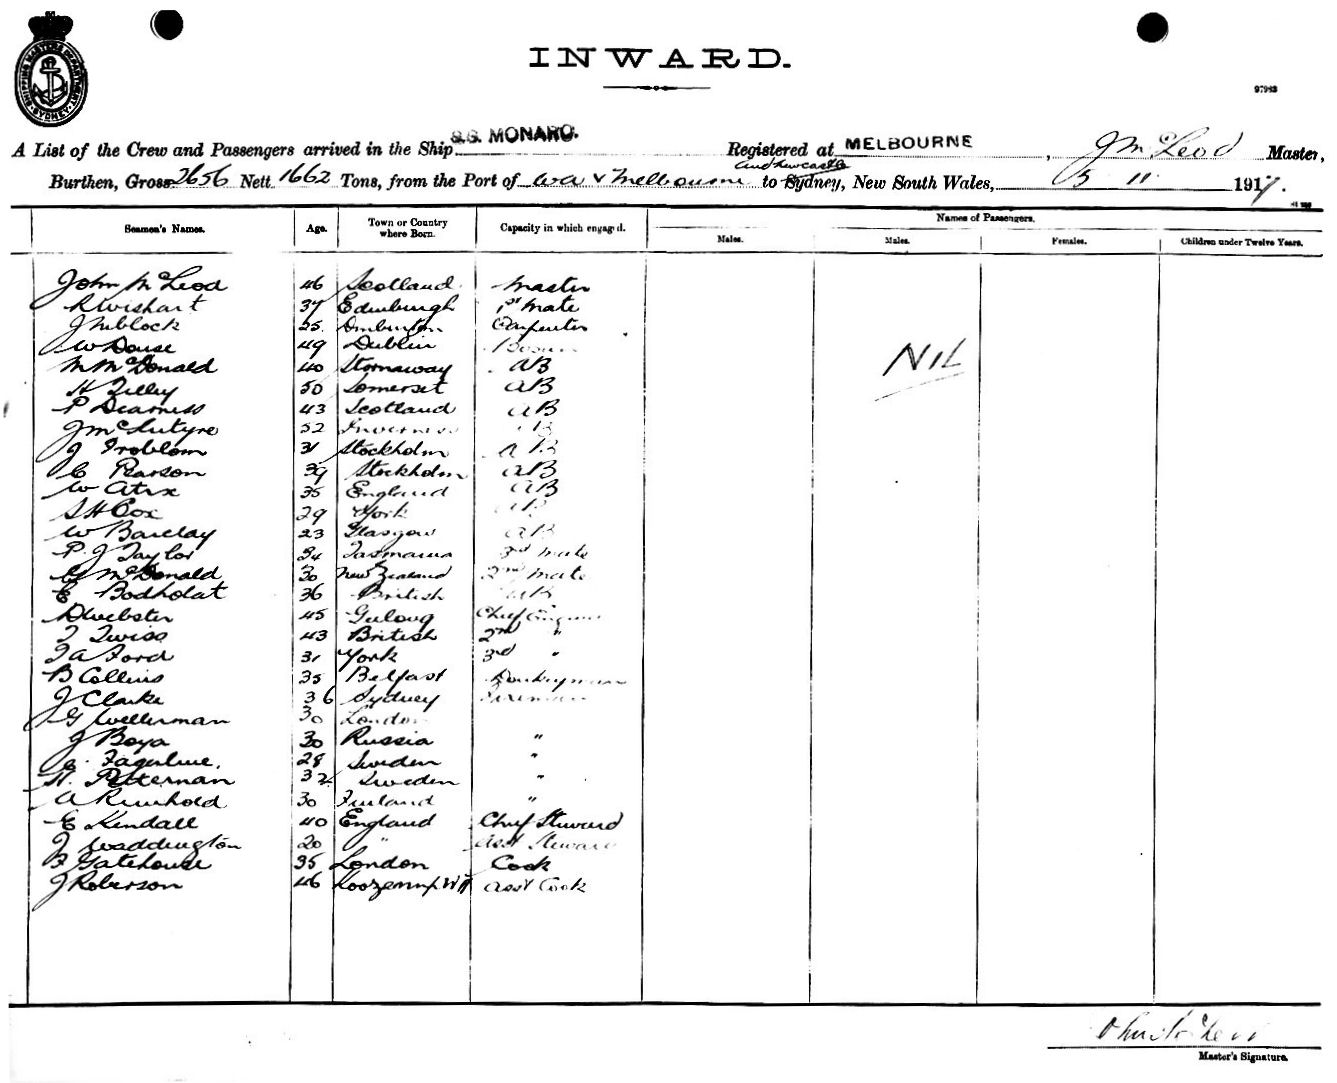 SHIPPING MASTERS DEPARTMENT SYDNEY
INWARD.
97983
A List of the Crew and Passengers arrived in the Ship S.S. MONARO. Registered at MELBOURNE, J McLeod Master,
and Newcastle
Burthen, Gross 2656 Nett 1662 Tons, from the Port of WA & Melbourne to Sydney, New South Wales, 5 11 1917.
Seamen's Names. Age. Town or Country where Born. Capacity in which engaged. Names of Passengers.
Males. Males. Females. Children under Twelve Years.
John McLeod 46 Scotland Master
R Wishart 37 Edinburgh 1st Mate
J Niblock 25 Carpenter
W Douse 49 Dublin Bosun
M McDonald 40 Stornaway AB
NIL
H Tilley 50 Somerset AB
P Dearness 43 Scotland AB
J McIntyre 52 Inverness AB
J Froblom 31 Stockholm AB
C Pearson 39 Stockholm AB
W 35 England AB
S H Cox 29 York AB
W Barclay 23 Glasgow AB
P. J Taylor 34 Tasmania 3rd Mate
G McDonald 30 New Zealand 2nd Mate
E Bodholat 36 British AB
D Webster 45 Geelong Chief Engineer
J Twiss 43 British 2nd "
J A Ford 31 York 3rd "
B Collins 35 Belfast Donkeyman
J Clarke 36 Sydney Fireman
G Wellerman 30 London
J Boya 30 Russia "
28 Sweden "
H. Petternan 32 Sweden "
A Reinhold 30 Finland "
E Kendall 40 England Chief Steward
J Waddington 20 " Asst Steward
F Gatehouse 35 London Cook
J Roberson 46 Asst Cook
Master's Signature.